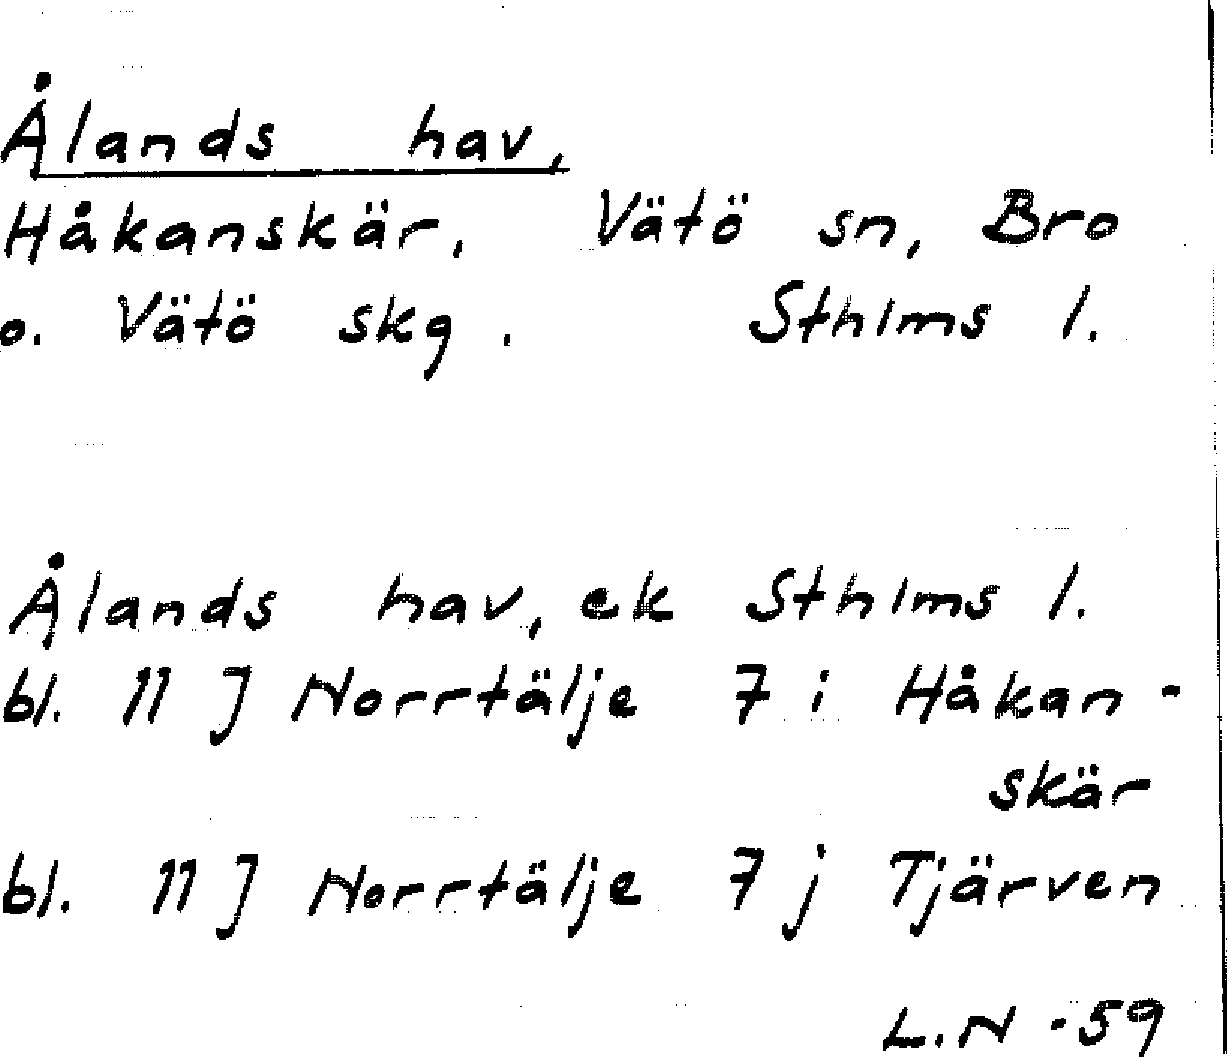 Ålands hav,
Håkanskär, Vätö sn, Bro
o. Vätö skg. Sthlms l.
Ålands hav, ek Sthlms l.
bl. 11 J Norrtälje 7 i Håkan-
skär
bl. 11 J Norrtälje 7 j Tjärven
L.N -59